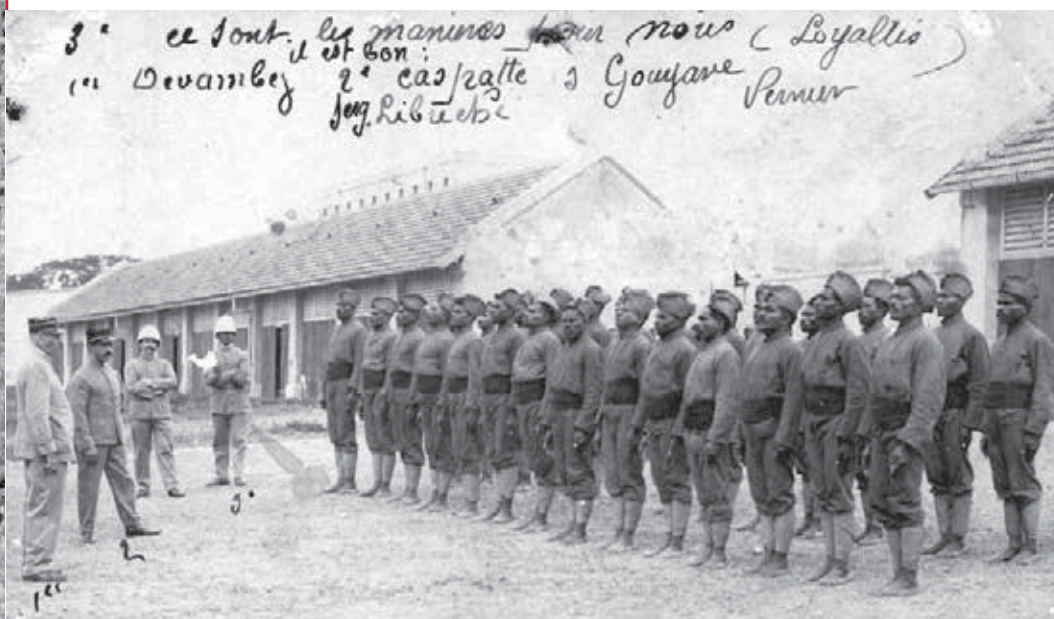 3° ce sont les manines pour nous ( Loyaltis )
il est bon :
1er Devambez 2e caspatte 3 Gouyave Perrier
Serg. Libuche
3°
2
1er